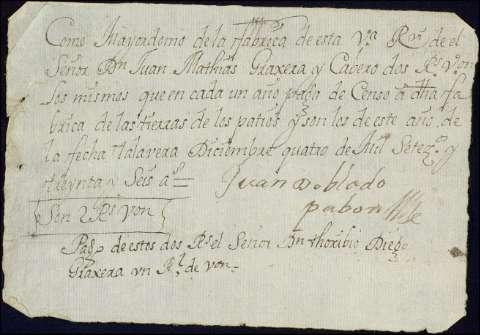 Como Mayordomo de la fabrica de esta Vª Rvⁱ de el
Señor Dn Juan Mathias Graxera y Cabero dos Rs Von
los mismos que en cada un año paga de Censo â dha fa
brica de las tierras de los patios y son los de este año, de
la fecha talavera Diciembre quatro de Mil Setezs y
treynta y Seis as
Juan Doblado
pabon
Son 2 Rs von
Pago de estos dos Rs el Señor Dn thoribio Diego
Graxera un Rl de von